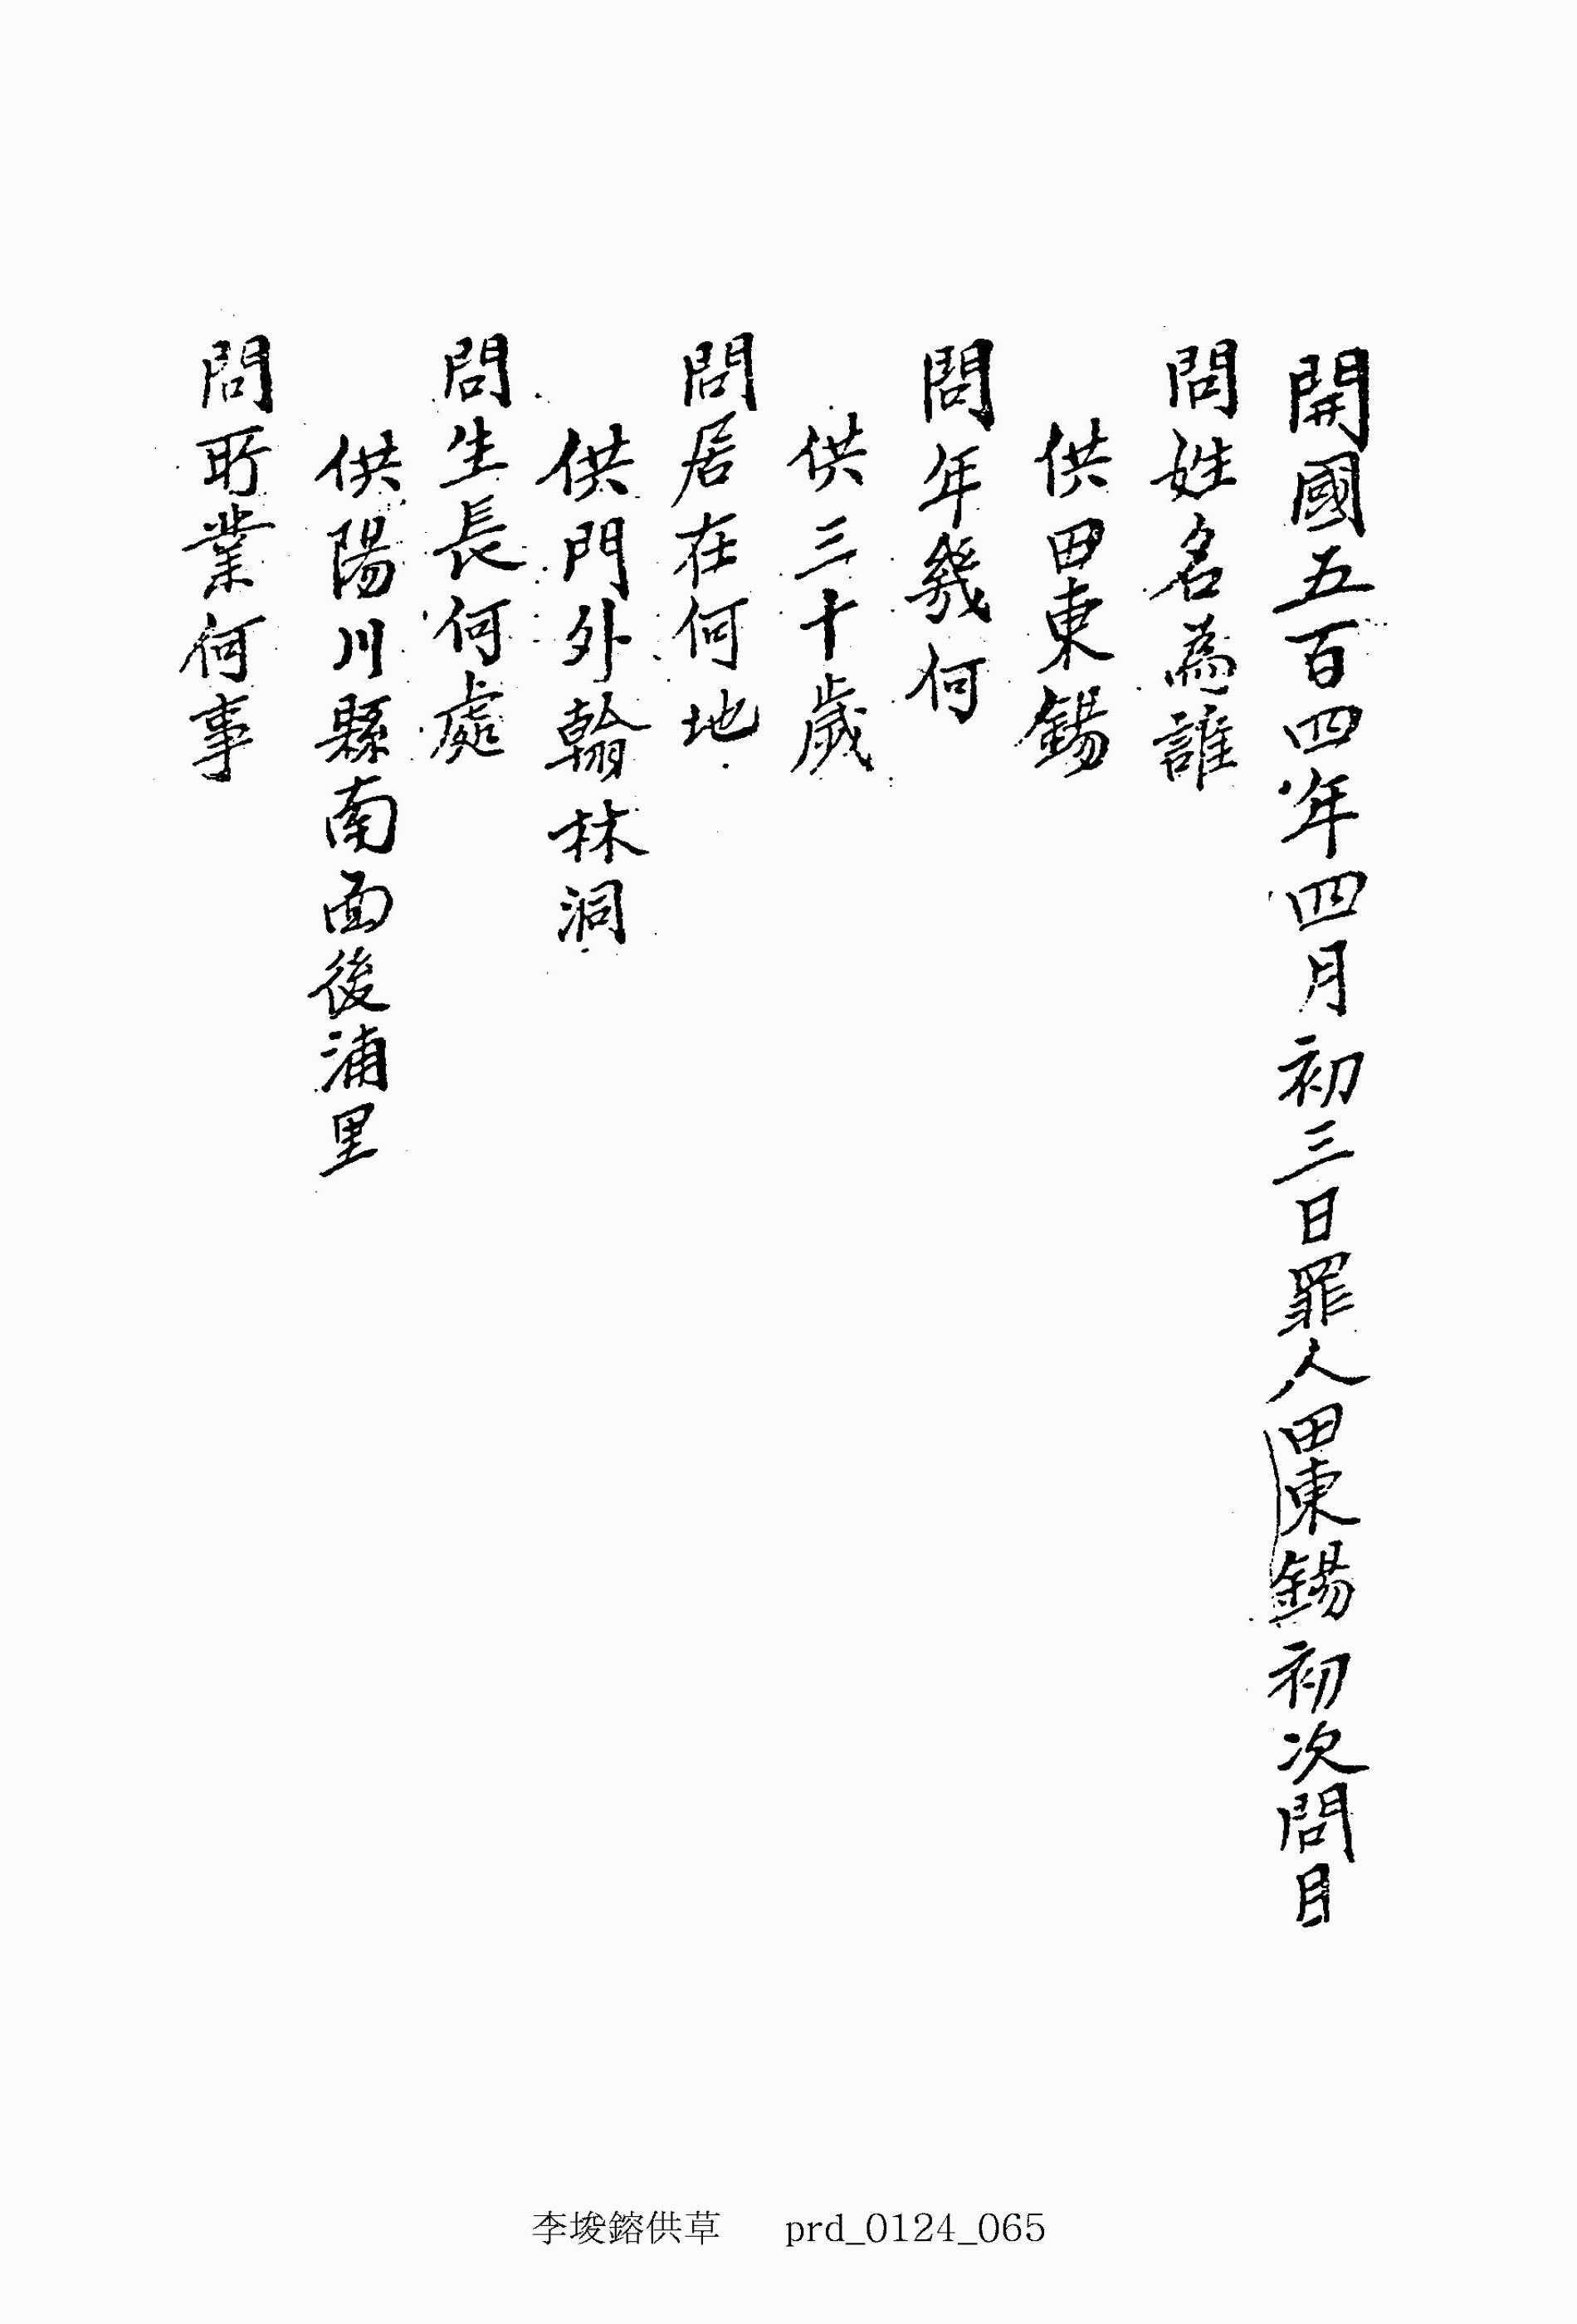 開國五百四年四月初三日罪人田東錫初次問目
問姓名為誰
供田東錫
問年幾何
供三十歲
問居在何地
供門外翰林洞
問生長何處
供陽川縣南面後浦里
問所業何事
李埈鎔供草 prd_0124_065